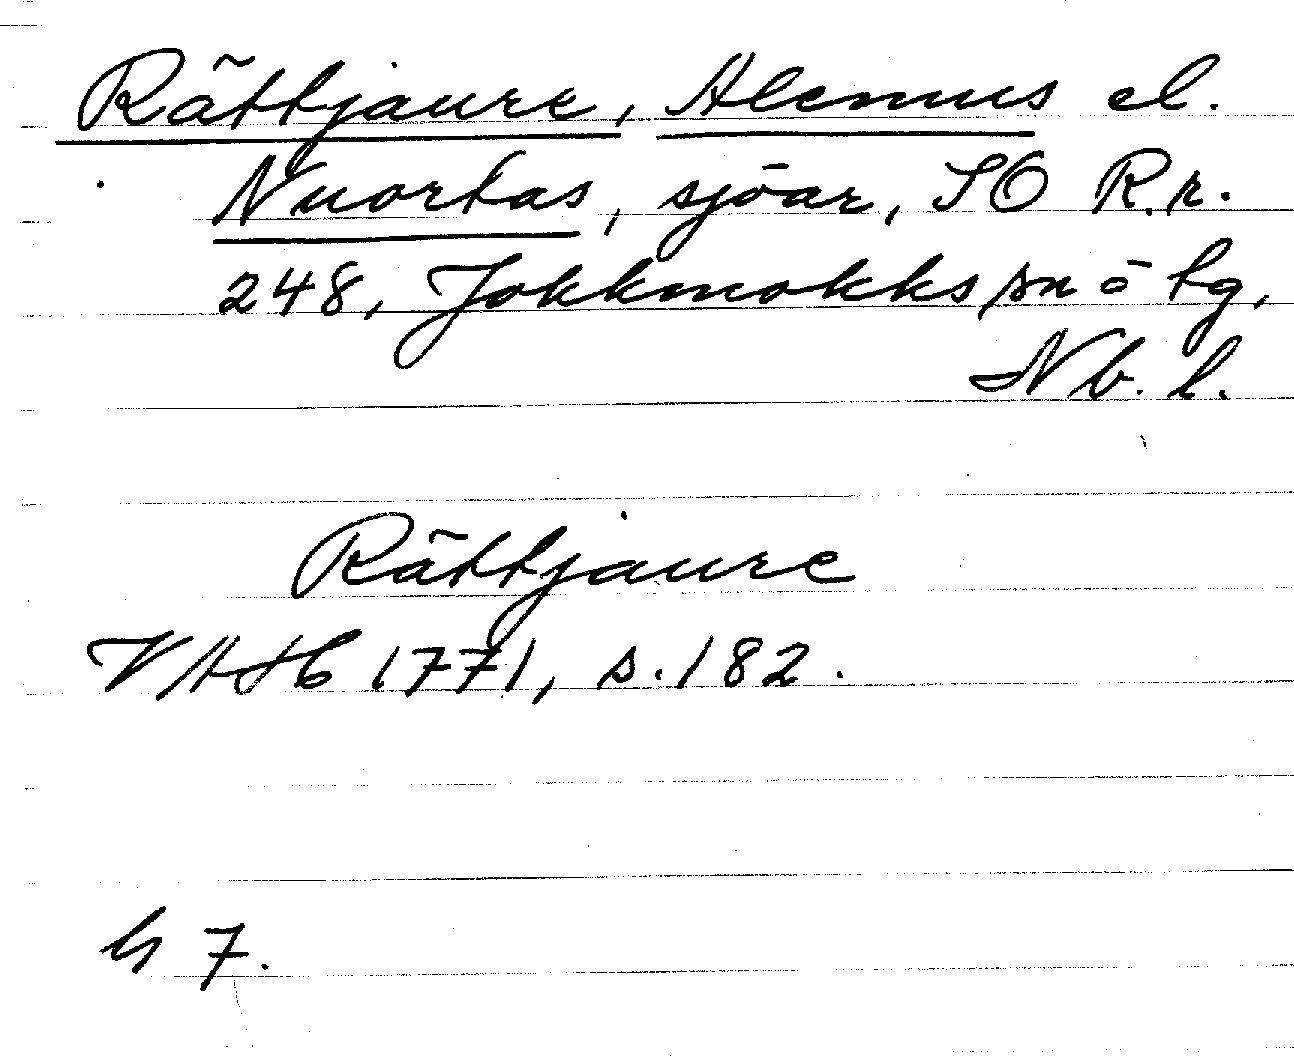 Rättjaure, Alemus el.
Nuortas, sjöar, SO R.r.
248, Jokkmokks sn ö lg,
Nb. l.
Rättjaure
VAHb 1771, s. 182.
h 7.